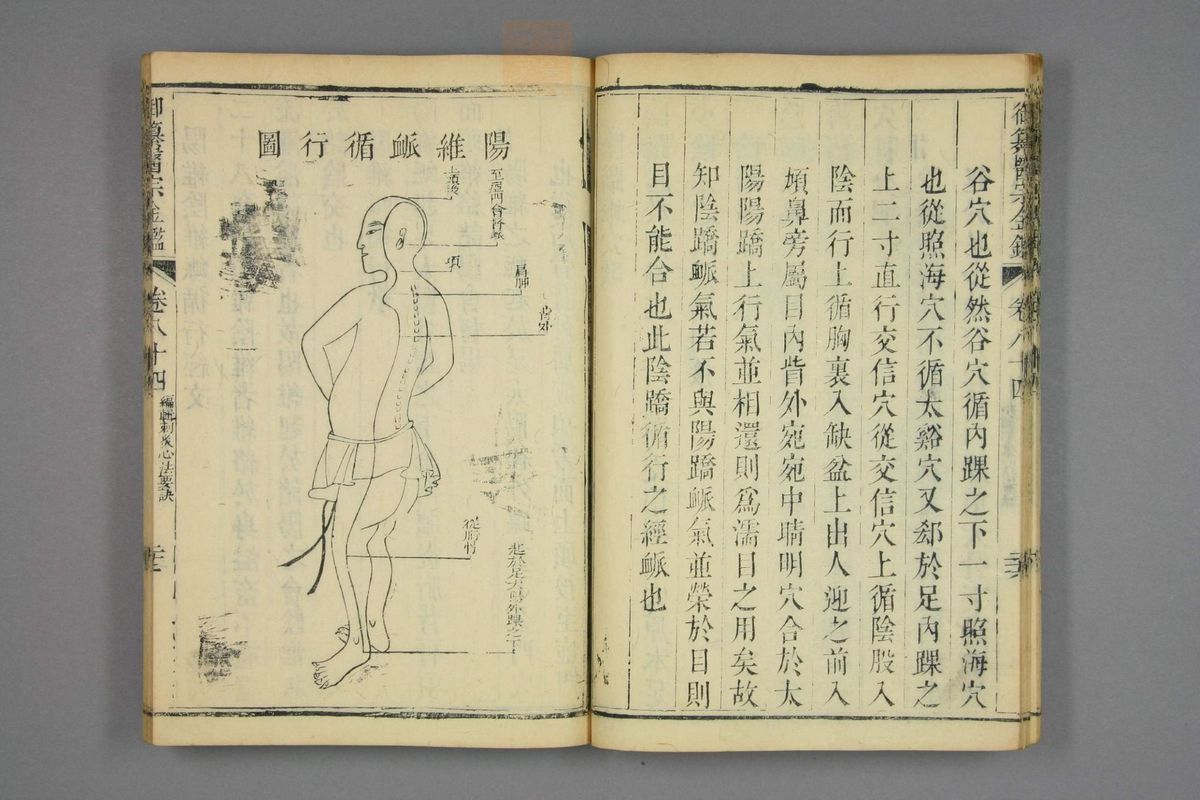 御纂醫宗金鑑
卷八十四
谷穴也從然谷穴循內踝之下一寸照海穴
也從照海穴不循太谿穴又郄於足內踝之
上二寸直行交信穴從交信穴上循陰股入
陰而行上循胸裏入缺盆上出人迎之前入
頄鼻旁屬目內眥外宛宛中睛明穴合於太
陽陽蹻上行氣並相還則為濡目之用矣故
知陰蹻䘑氣若不與陽蹻䘑氣並榮於目則
目不能合也此陰蹻循行之經䘑也
陽維䘑循行圖
至瘂門會督䘑
上頭後
項
肩胛
脅外
從胻骨
起於足太陽外踝之下
御纂醫宗金鑑
卷八十四
編輯刺灸心法要訣